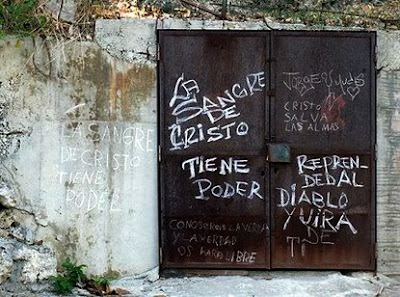 LA SANGRE
DE CRISTO
TIENE
PODER
LA
SANGRE
DE CRISTO
TIENE
PODER
CONOSEREIS LA VERDA
Y LA VERDAD
OS HARA LIBRE
CRISTO
SALVA
LAS ALMAS
REPREN
DEDAL
DIABLO
Y UIRA
DE
TI